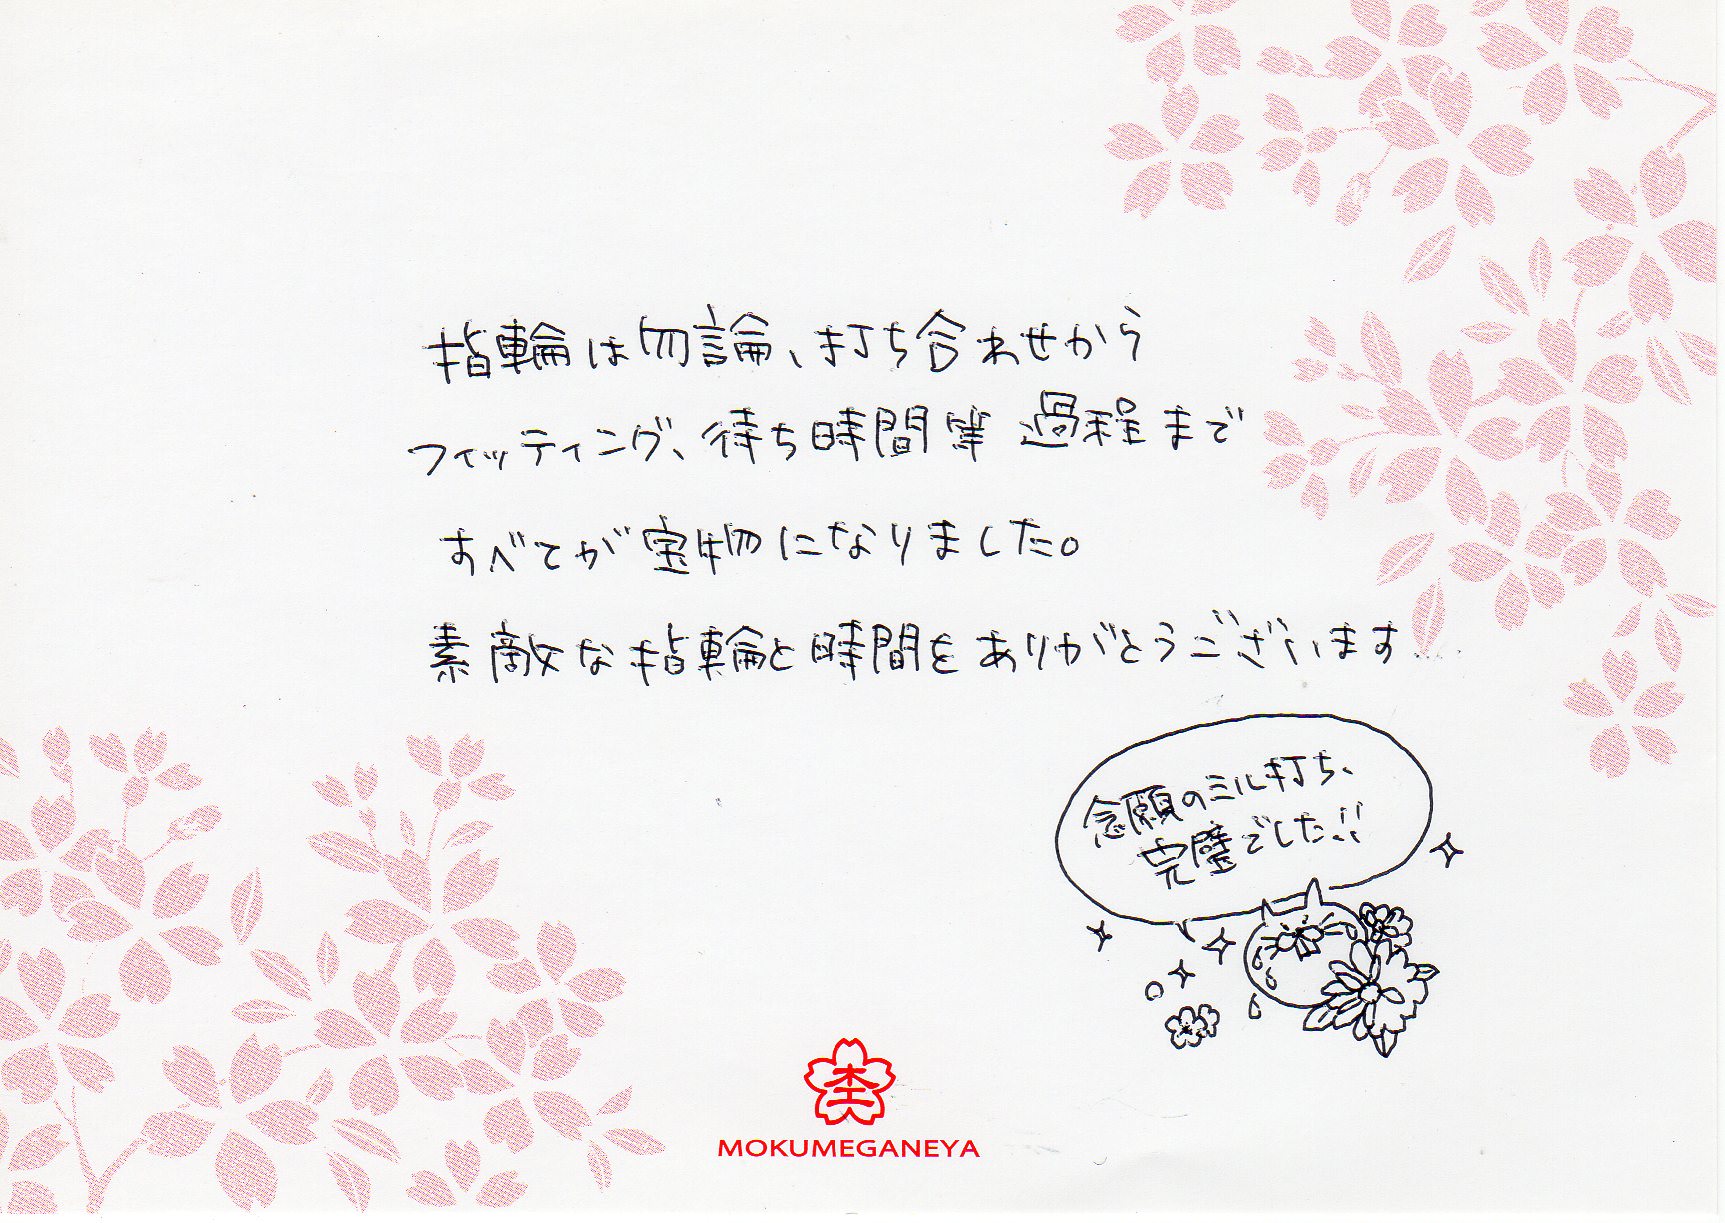 指輪は勿論、打ち合わせから
フィッティング、待ち時間等 過程まで
すべてが宝物になりました。
素敵な指輪と時間をありがとうございます....
念願のミル打ち、
完璧でした!!
MOKUMEGANEYA